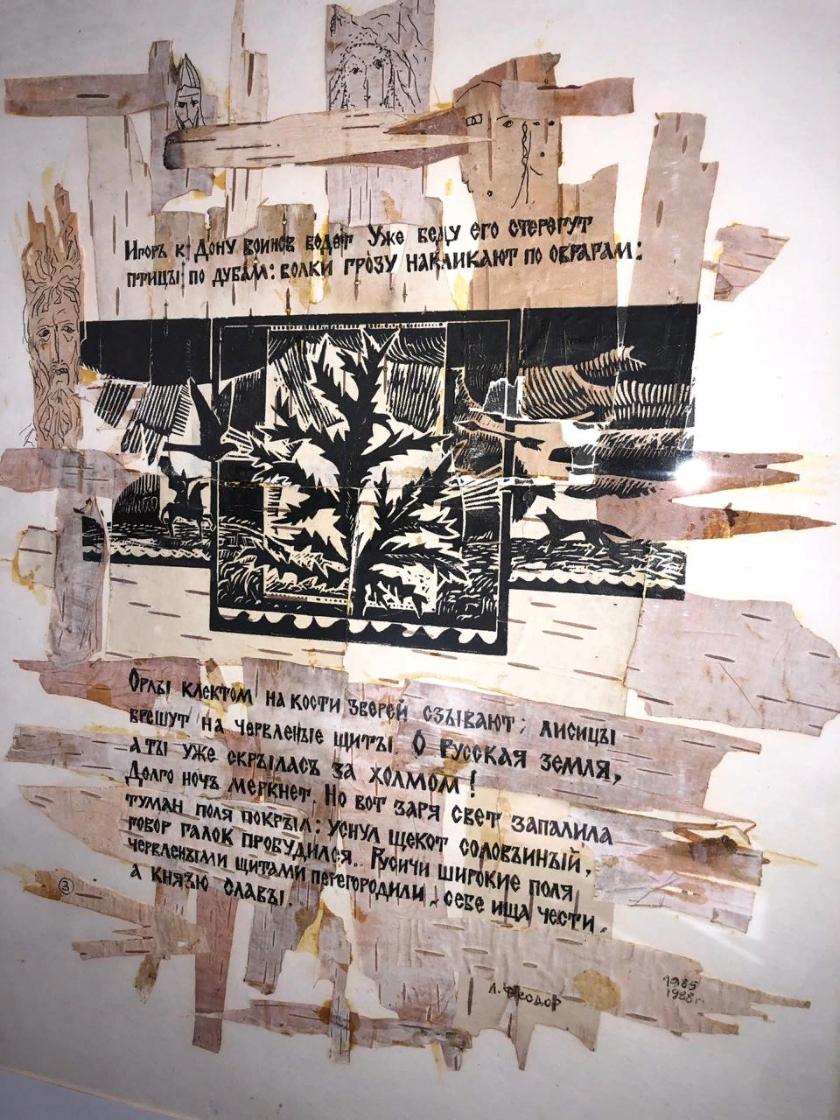 Игорь к Дону воинов ведет Уже беду его стерегут
птицы по дубам: волки грозу накликают по оврагам:
Орлы клектом на кости зверей сзывают; лисицы
брешут на червленые щиты. О Русская земля,
а ты уже скрылась за холмом!
Долго ночь меркнет. Но вот заря свет запалила
туман поля покрыл: уснул щекот соловьиный,
говор галок пробудился. Русичи широкие поля
червлеными щитами перегородили, себе ища чести.
а князю славы.
3
Л. Феодор
1985
1988 г.